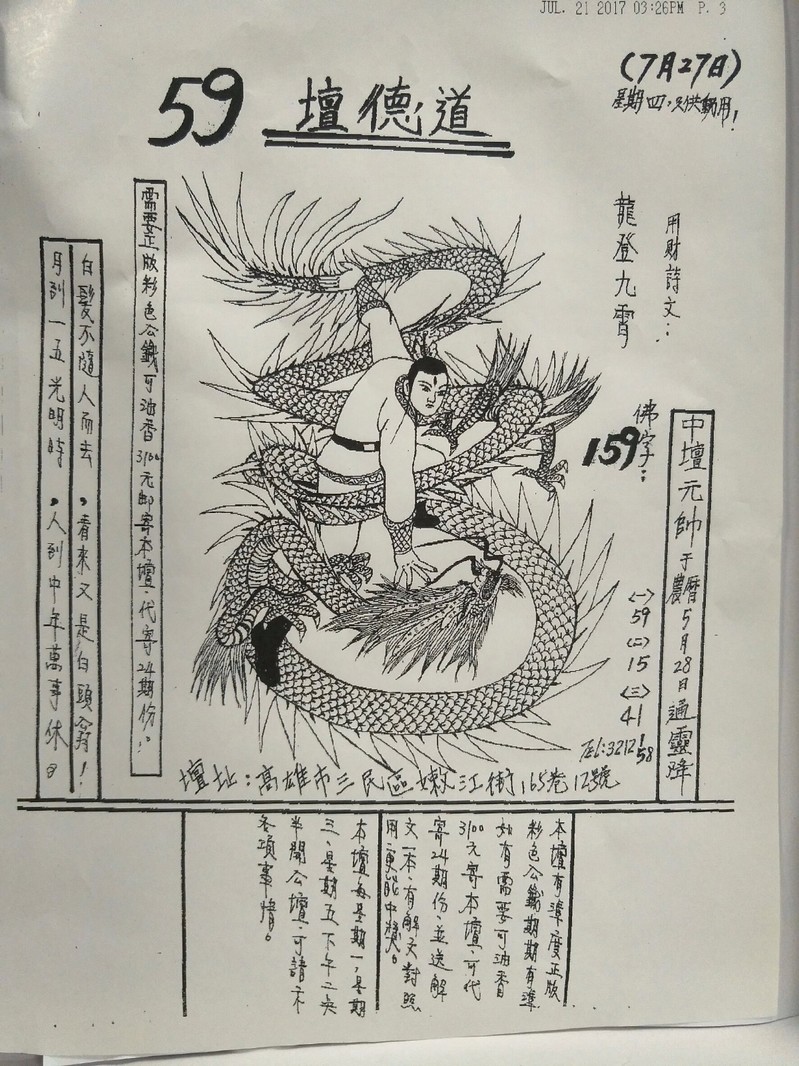 JUL. 21 2017 03:26PM P. 3
(7月27日)
星期四,只供動用!
59 壇德道
用財詩文:
龍登九霄
佛字:
159
中壇元帥于農曆5月28日通靈降
<一>
59
<二>
15
<三>
41
TEL:3212158
需要正版彩色公籤可油香3100元邮寄本壇.代寄24期份!。
白髮不隨人而去,看來又是白頭翁!
月到一五光明時,人到中年萬事休。
壇址:高雄市三民區嫩江街165巷12號
本壇有準度正版
彩色公籤期期有準
如有需要可油香
3100元寄本壇.可代
寄24期份.並送解
文一本.有解文對照
用更能中獎。
本壇每星期一,星期
三.星期五下午二点
半開公壇.可請示
各項事情。